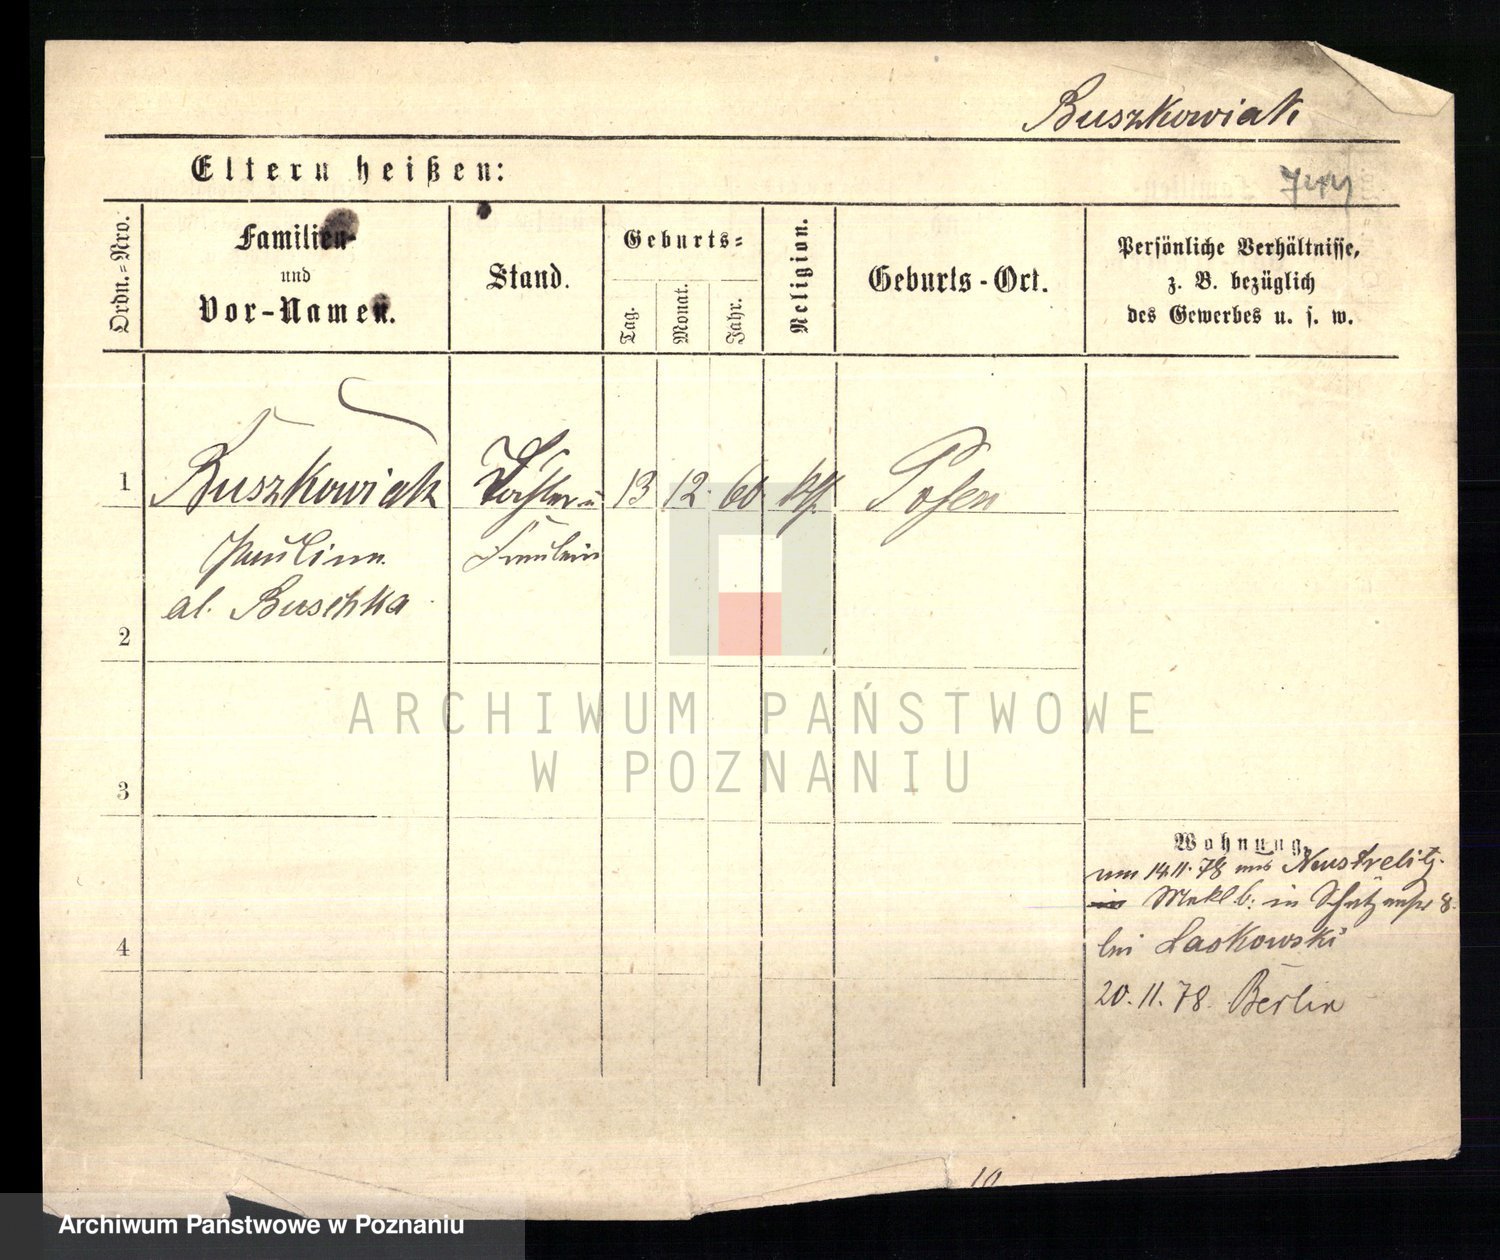 Buszkowiak
Eltern heißen:
744
Ordn.=Nro.
Familien-
und
Vor-Namen.
Stand.
Geburts=
Tag.
Monat.
Jahr.
Religion.
Geburts-Ort.
Persönliche Verhältnisse,
z. B. bezüglich
des Gewerbes u. s. w.
1
Buszkowiak
13
12.
60
kth.
Posen
Pauline
Fräulein
al. Buschka
2
ARCHIWUM PAŃSTWOWE
W POZNANIU
3
Wohnung.
14.11.78 Neustrelitz
in Mekl b: in
4
bei Laskowski
20.11.78. Berlin
10
Archiwum Państwowe w Poznaniu